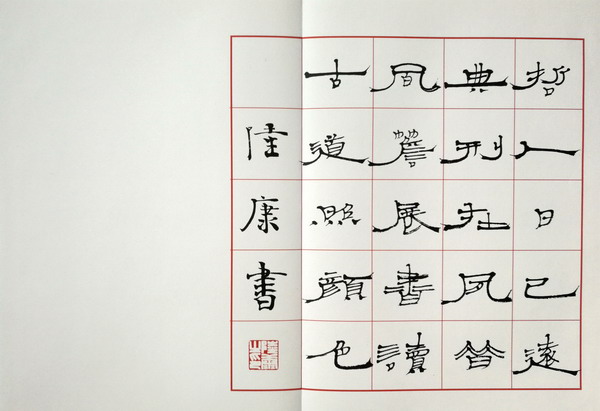 哲人日已遠
典刑在夙昔
風簷展書讀
古道照顏色
陸康書